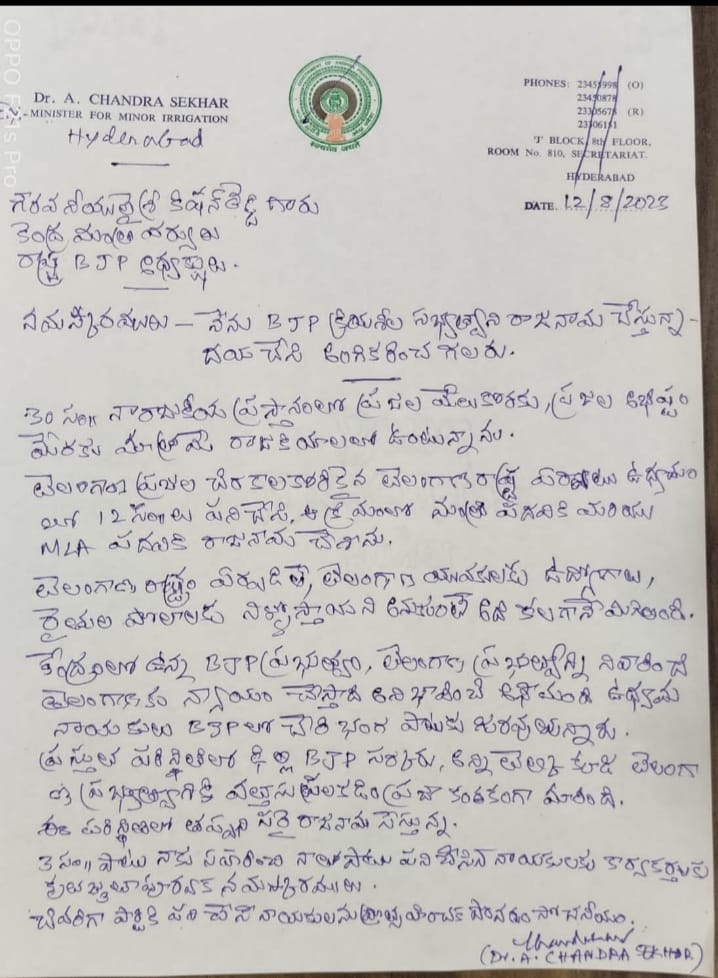 Dr. A. CHANDRA SEKHAR
MINISTER FOR MINOR IRRIGATION
Hyderabad
PHONES: 23451998 (O)
23450878
23305678 (R)
23306151
'J' BLOCK, 8th FLOOR,
ROOM No. 810, SECRETARIAT.
HYDERABAD
DATE. 12/8/2023
గౌరవనీయులైన శ్రీ కిషన్ రెడ్డి గారు
కేంద్ర మంత్రి వర్యులు
రాష్ట్ర BJP అధ్యక్షులు.
నమస్కారములు – నేను BJP క్రియశీల సభ్యత్వాని రాజనామ చేస్తున్న-
దయచేసి అంగీకరించ గలరు.
30 సం॥ నా రాజకీయ ప్రస్తానంలో ప్రజల మేలుకొరకు, ప్రజల అభీష్టం
మేరకు మాత్రమె రాజకీయాలలో ఉంటున్నాను.
తెలంగాణ ప్రజల చిరకాల కోరికైన తెలంగాణ రాష్ట్ర ఏర్పాటు ఉధ్యమం
లో 12 సం॥లు పనిచేసి, ఆ క్రమంలో మంత్రి పదవికి మరియు
MLA పదవికి రాజనామ చేశాను.
తెలంగాణ రాష్ట్రం ఏర్పడితె, తెలంగాణ యువకులకు ఉద్యోగాలు,
రైతుల పొలాలకు నీళ్ళోస్తాయని అనుకుంటే అది కలగానే మిగిలింది.
కేంద్రంలో ఉన్న BJP ప్రభుత్వం, తెలంగాణ ప్రభుత్వాన్ని నివారించి
తెలంగాణకు న్యాయం చేస్తాది అని భావించి అనేకమంది ఉధ్యమ
నాయకులు BJP లో చేరి భంగ పాటుకు గురవుతున్నారు.
ప్రస్తుత పరిస్థితిలో ఢిల్లి BJP సర్కారు, అన్ని తెలిసి కూడ తెలంగా
ణ ప్రభుత్వానికి వత్తాసు పలకడం ప్రజా కంటకంగా మారింది.
ఈ పరిస్థితిలో తప్పని సరై రాజనామ చేస్తున్న.
3 సం॥ పాటు నాకు సహకరించి నాతోపాటు పని చేసిన నాయకులకు కార్యకర్తలకు
కృతజ్ఞతాపూర్వక నమస్కారములు.
చివరిగా పార్టికి పని చేసే నాయకులను ప్రోత్సహించక పోవడం శోచనీయం.
(Dr. A. CHANDRA SEKHAR)